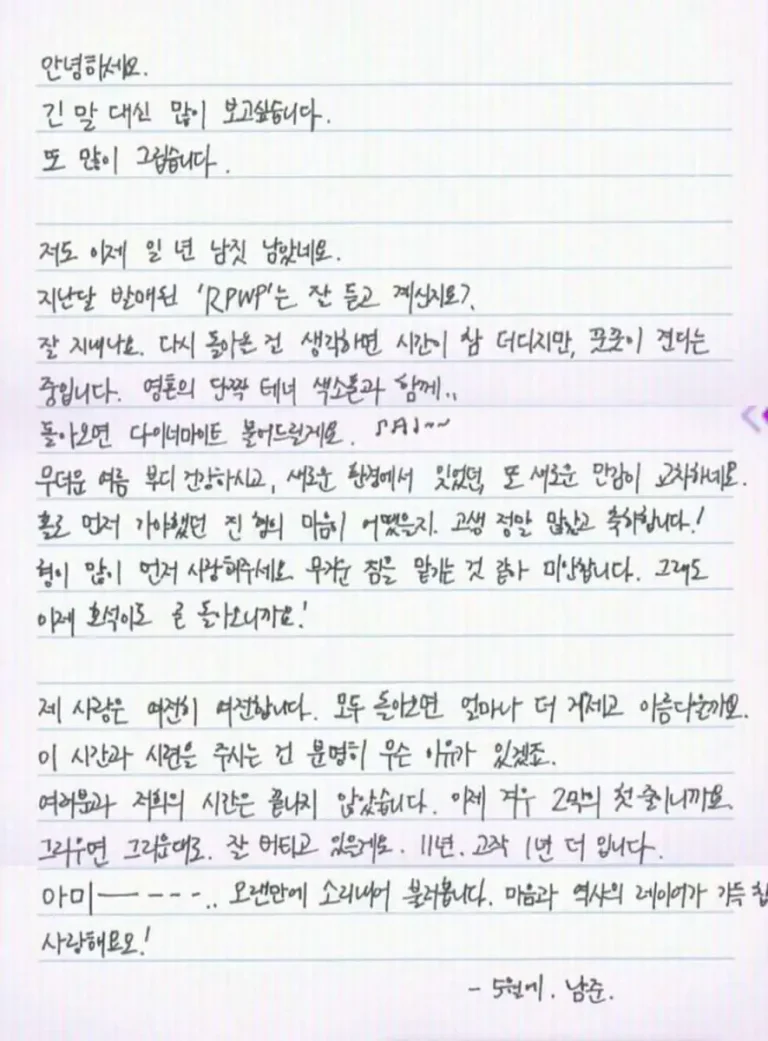 안녕하세요.
긴 말 대신 많이 보고싶습니다.
또 많이 그립습니다.
저도 이제 일 년 남짓 남았네요.
지난달 발매된 'RPWP'는 잘 듣고 계신지요?
잘 지내나요. 다시 돌아올 건 생각하면 시간이 참 더디지만, 꿋꿋이 견디는
중입니다. 영혼의 단짝 테너 색소폰과 함께..
돌아오면 다이너마이트 불어드릴게요. ♫♬♩~~
무더운 여름 부디 건강하시고, 새로운 환경에서 잊었던, 또 새로운 만감이 교차하네요.
홀로 먼저 가야했던 진 형의 마음이 어땠을지. 고생 정말 많았고 축하합니다!
형이 많이 먼저 사랑해주세요. 무거운 짐을 맡기는 것 같아 미안합니다. 그래도
이제 호석이도 곧 돌아오니까요!
제 사랑은 여전히 여전합니다. 모두 돌아오면 얼마나 더 거세고 아름다울까요.
이 시간과 시련을 주시는 건 분명히 무슨 이유가 있겠죠.
여러분과 저희의 시간은 끝나지 않았습니다. 이제 겨우 2막의 첫 줄이니까요.
그리우면 그리운대로. 잘 버티고 있을게요. 11년. 고작 1년 더 입니다.
아미——---.. 오랜만에 소리내어 불러봅니다. 마음과 역사의 레이어가 가득
사랑해요오!
- 5월에. 남준.